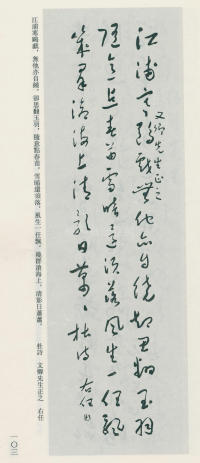 文卿先生正之
江浦寒鷗戲無他亦自饒却思翻玉羽
隨意點春苗雪暗還須落風生一任飄
幾群滄海上清影日蕭〻杜詩
右任
江浦寒鷗戲，無他亦自饒，卻思翻玉羽，隨意點春苗，雪暗還須落，風生一任飄，幾群滄海上，清影日蕭蕭。 杜詩 文卿先生正之 右任
一〇三